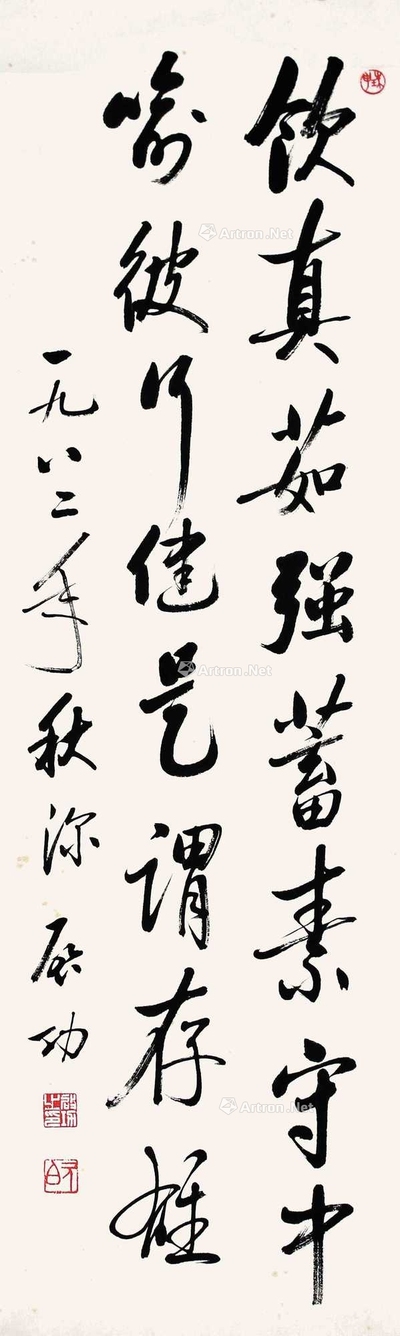 饮真茹强蓄素守中
喻彼行健是谓存雄
一九八二年秋深 启功
Artron.Net
Artron.Net
Artron.Net
Artron.Net